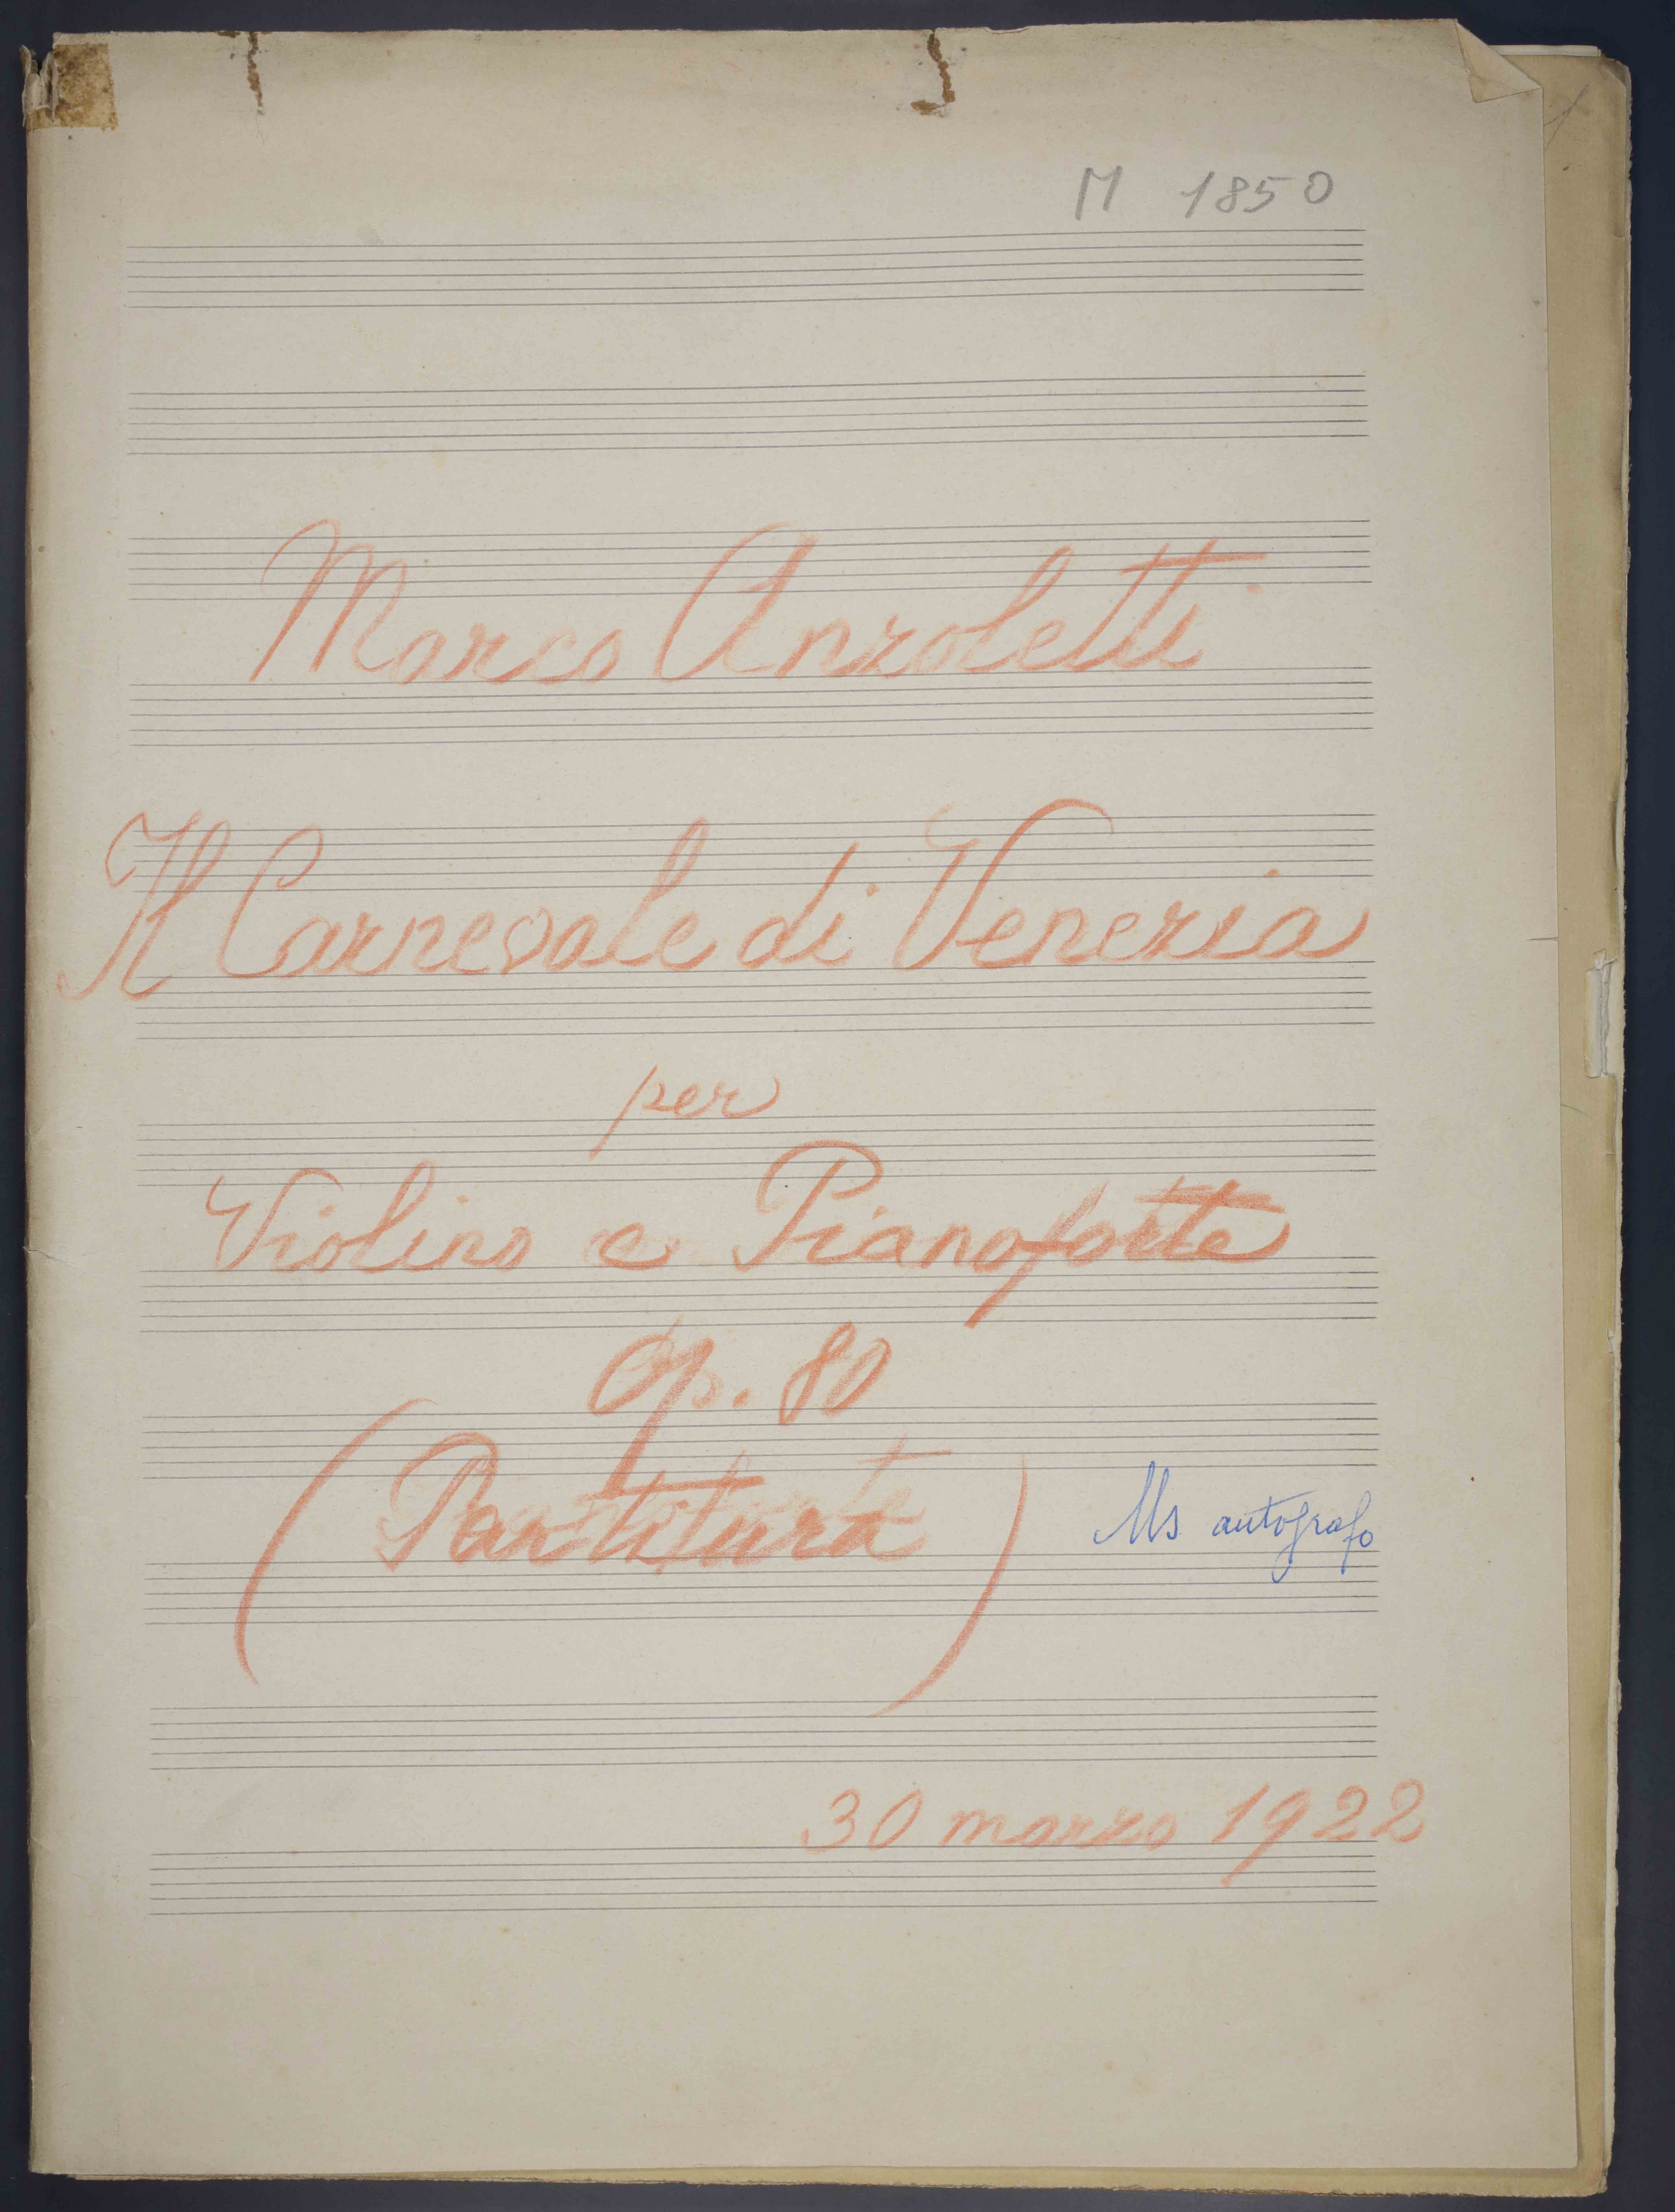 M 1850
Marco Anzoletti
Il Carnevale di Venezia
per
Violino e Pianoforte
Op. 80
(Partitura)
Ms autografo
30 marzo 1922